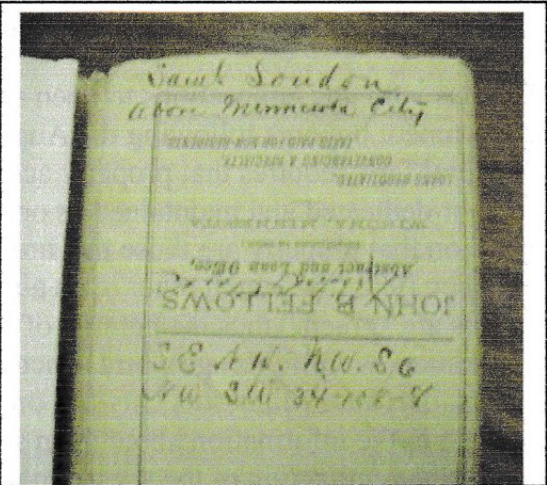 Saml Loudon
above Minnesota City
TAXES PAID FOR NON-RESIDENTS
CONVEYANCING A SPECIALTY.
LOANS NEGOTIATED.
WINONA, MINNESOTA
Abstract and Loan Office,
JOHN B. FELLOWS
S E N W. N W. S E
N W S W 34-108-8